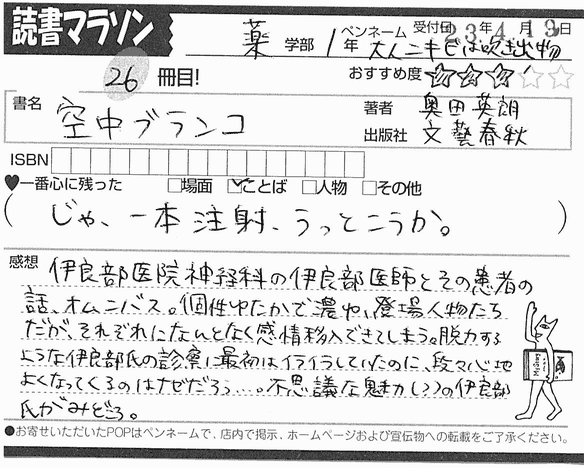 読書マラソン
薬 学部 1年
ペンネーム 大人ニキビは吹き出物
受付日 23年4月19日
26 冊目!
おすすめ度 ★★★☆☆
書名 空中ブランコ
著者 奥田英朗
出版社 文藝春秋
ISBN
♥一番心に残った □場面 ☑ことば □人物 □その他
(じゃ、一本注射、うっとこうか。)
感想 伊良部医院神経科の伊良部医師とその患者の
話、オムニバス。個性ゆたかで濃ゆい登場人物たち
だが、それぞれになんとなく感情移入できてしまう。脱力する
ような伊良部氏の診察に最初はイライラしていたのに、段々心地
よくなってくるのはナゼだろう…。不思議な魅力(??)の伊良部
氏がみどころ。
●お寄せいただいたPOPはペンネームで、店内で掲示、ホームページおよび宣伝物への転載をご了承ください。